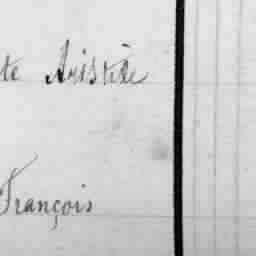 te Aristide
François